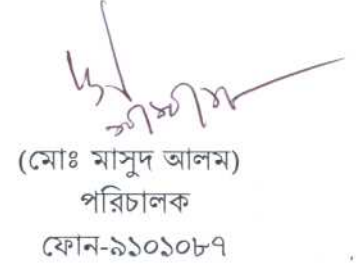 (মোঃ মাসুদ আলম)
পরিচালক
ফোন-৯১০১০৮৭